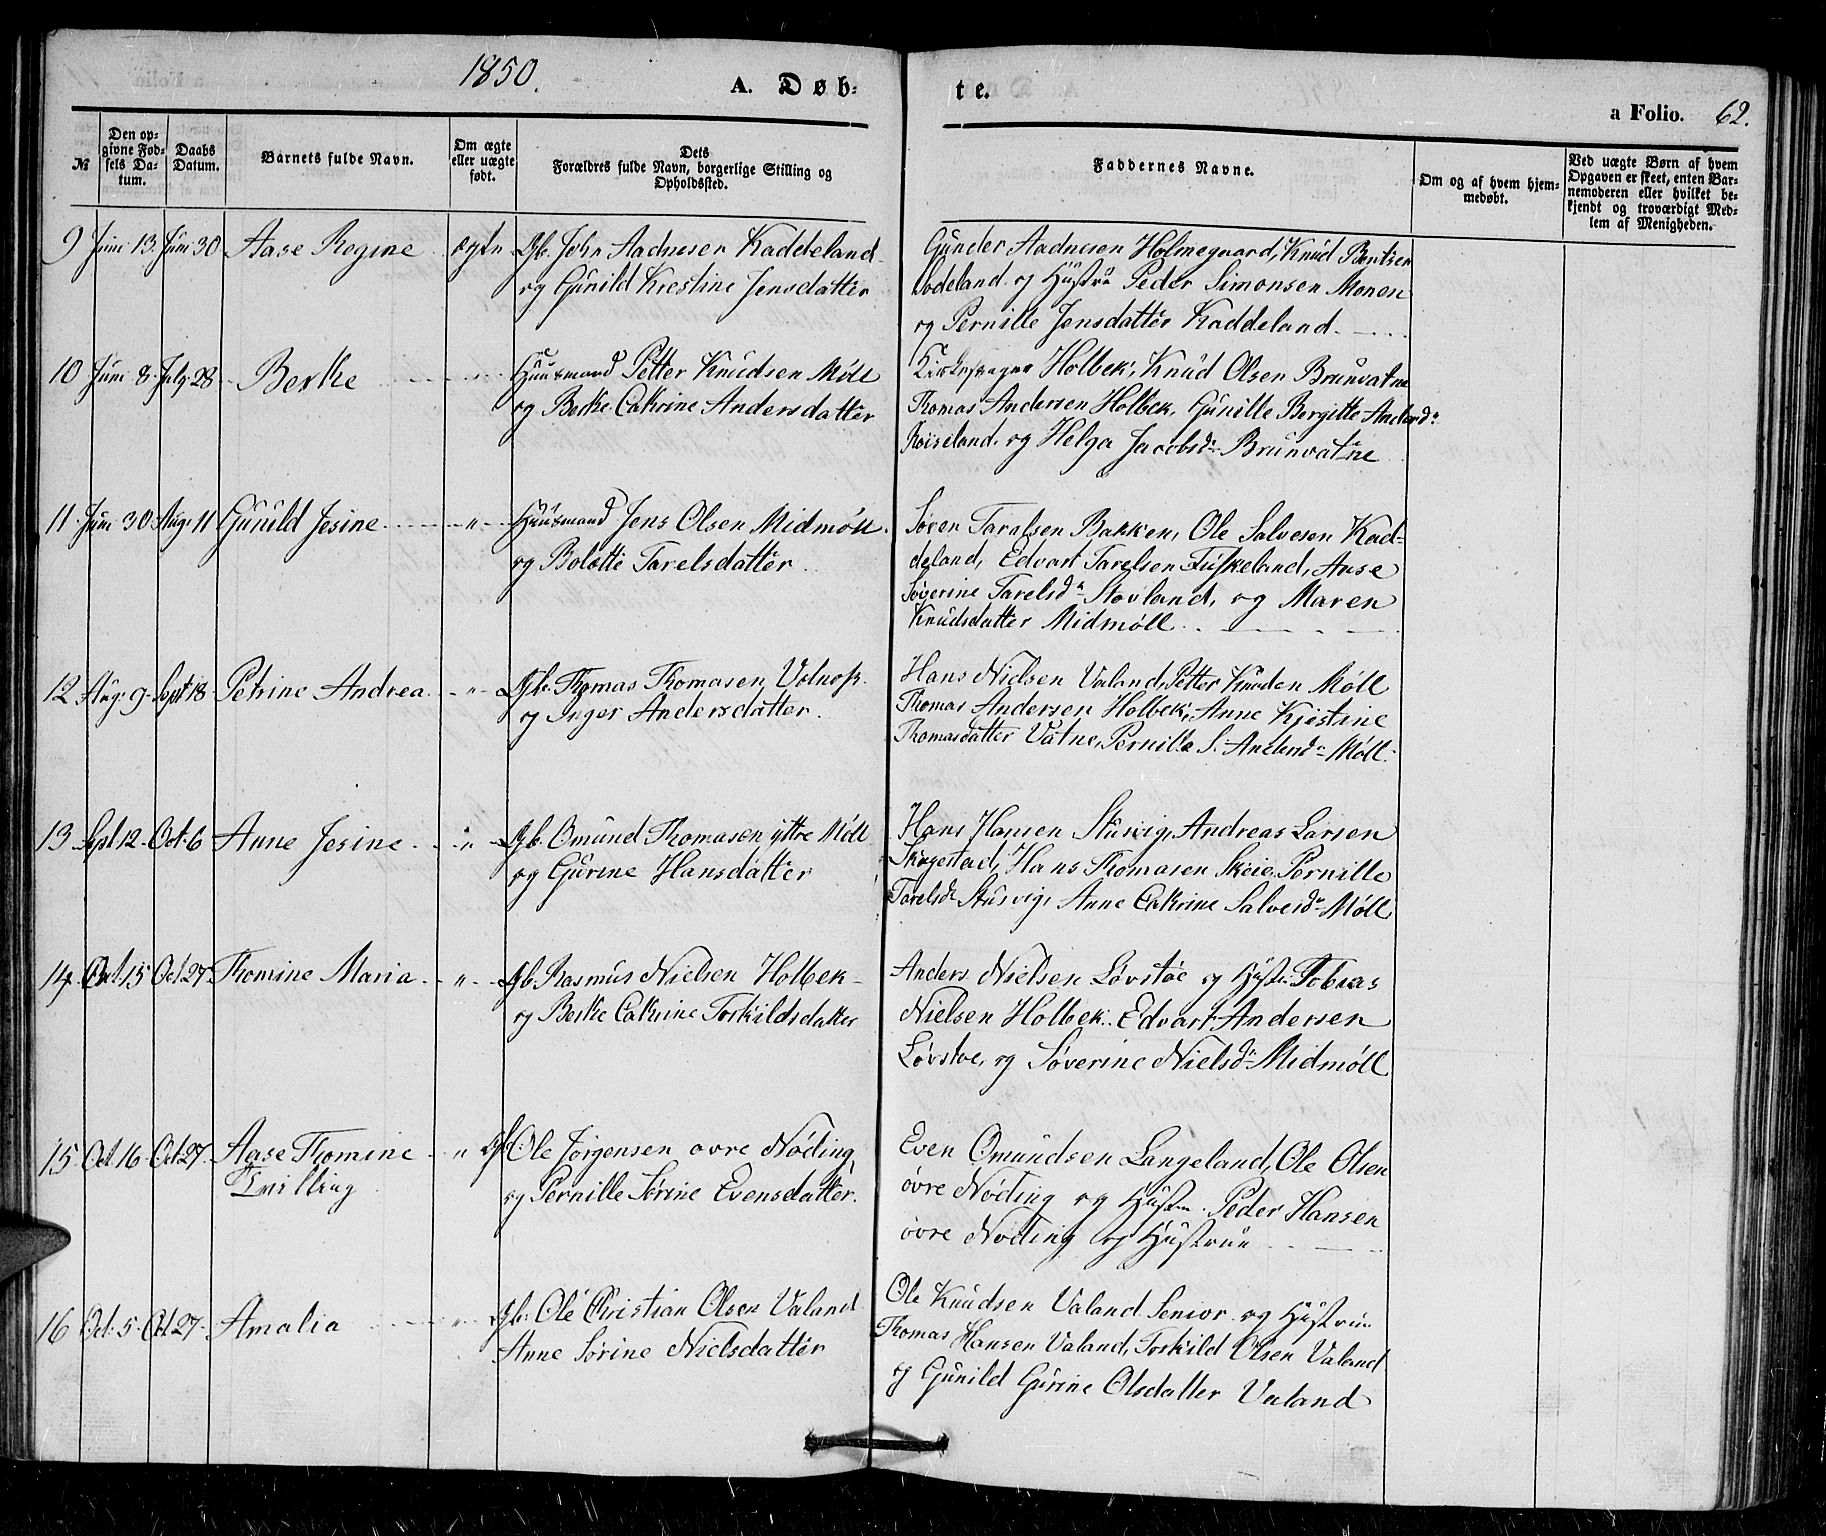 1850.
A. Døb-
te.
a Folio. 62.
No
Den op-
givne Fød-
sels Da-
tum.
Daabs
Datum.
Barnets fulde Navn.
Om ægte
eller uægte
født.
Dets
Forældres fulde Navn, borgerlige Stilling og
Opholdssted.
Faddernes Navne.
Om og af hvem hjem-
medøbt.
Ved uægte Børn af hvem
Opgaven er skeet, enten Bar-
nemoderen eller hvilket be-
kjendt og troværdigt Med-
lem af Menigheden.
9 Juni 13. Juni 30 Aase Regine ægte Gb. John Aadnesen Kaddeland
og Gunild Kirstine Jensdatter
Gunder Aadnesen Holmegaard, Knud Bentsen
Sodeland og Hustru Peder Simonsen Monen
og Pernille Jensdatter Kaddeland.
10 Juni 8. July 28 Berthe " Huusmand Petter Knudsen Møll
og Berthe Cathrine Andersdatter
Holbek, Knud Olsen Brunvatne
Thomas Andersen Holbek, Gunille Bergitte Andersdr
Roiseland, og Helga Jacobsdr Brunvatne
11. Juni 30. Aug. 11 Gunild Jesine " Huusmand Jens Olsen Midmøll.
og Bolette Tarelsdatter
Søren Taralsen Bakken, Ole Salvesen Kad-
deland, Edvart Tarelsen Fuskeland, Aase
Søverine Tarelsdr Stovland, og Maren
Knudsdatter Midmøll.
12 Aug. 9. Sept 18 Petrine Andrea " Gb. Thomas Thomasen Volness.
og Inger Andersdatter.
Hans Nielsen Valand, Petter Knuden Møll
Thomas Andersen Holbek, Anne Kjistine
Thomasdatter Vatne, Pernille S. Andersdr Møll.
13 Sept 12. Oct. 6 Anne Jesine " Gb. Omund Thomasen yttre Møll
og Gurine Hansdatter
Hans Hansen Stusvig, Andreas Larsen
Skagestad, Hans Thomasen Skeie, Pernille
Tarelsdr Stusvig, Anne Cathrine Salvesdr Møll
14 Oct. 15 Oct. 27 Thomine Maria " Gb. Rasmus Nielsen Holbek
og Berthe Cathrine Torkildsdatter
Anders Nielsen Løvstøe og Hustr. Tobias
Nielsen Holbek. Edvart Andersen
Løvstoe, og Søverine Nielsdr Midmøll
15 Oct. 16 Oct 27. Aase Thomine " Gb. Ole Jørgensen øvre Nøding
Tvilling
og Pernille Sørine Evensdatter.
Even Omundsen Langeland, Ole Olsen
øvre Nøding og Hustru. Peder Hansen
øvre Nøding og Hustrue
16 Oct. 5. Oct 27. Amalia " Gb. Ole Christian Olsen Valand
Anne Sørine Nielsdatter
Ole Knudsen Valand Senior og Hustrue
Thomas Hansen Valand, Torkild Olsen Valand
og Gunild Gurine Olsdatter Valand